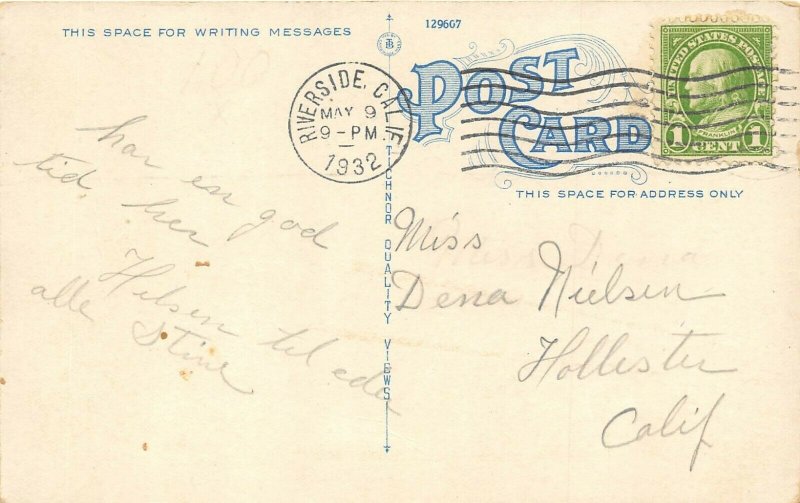 THIS SPACE FOR WRITING MESSAGES
129607
POST CARD
RIVERSIDE, CALIF.
MAY 9
9-PM
1932
UNITED STATES POSTAGE
FRANKLIN
1 CENT 1
THIS SPACE FOR ADDRESS ONLY
TICHNOR QUALITY VIEWS
har en god
tid. her
Hilsen til eder
alle Stine
Miss
Dena Nielsen
Hollister
Calif